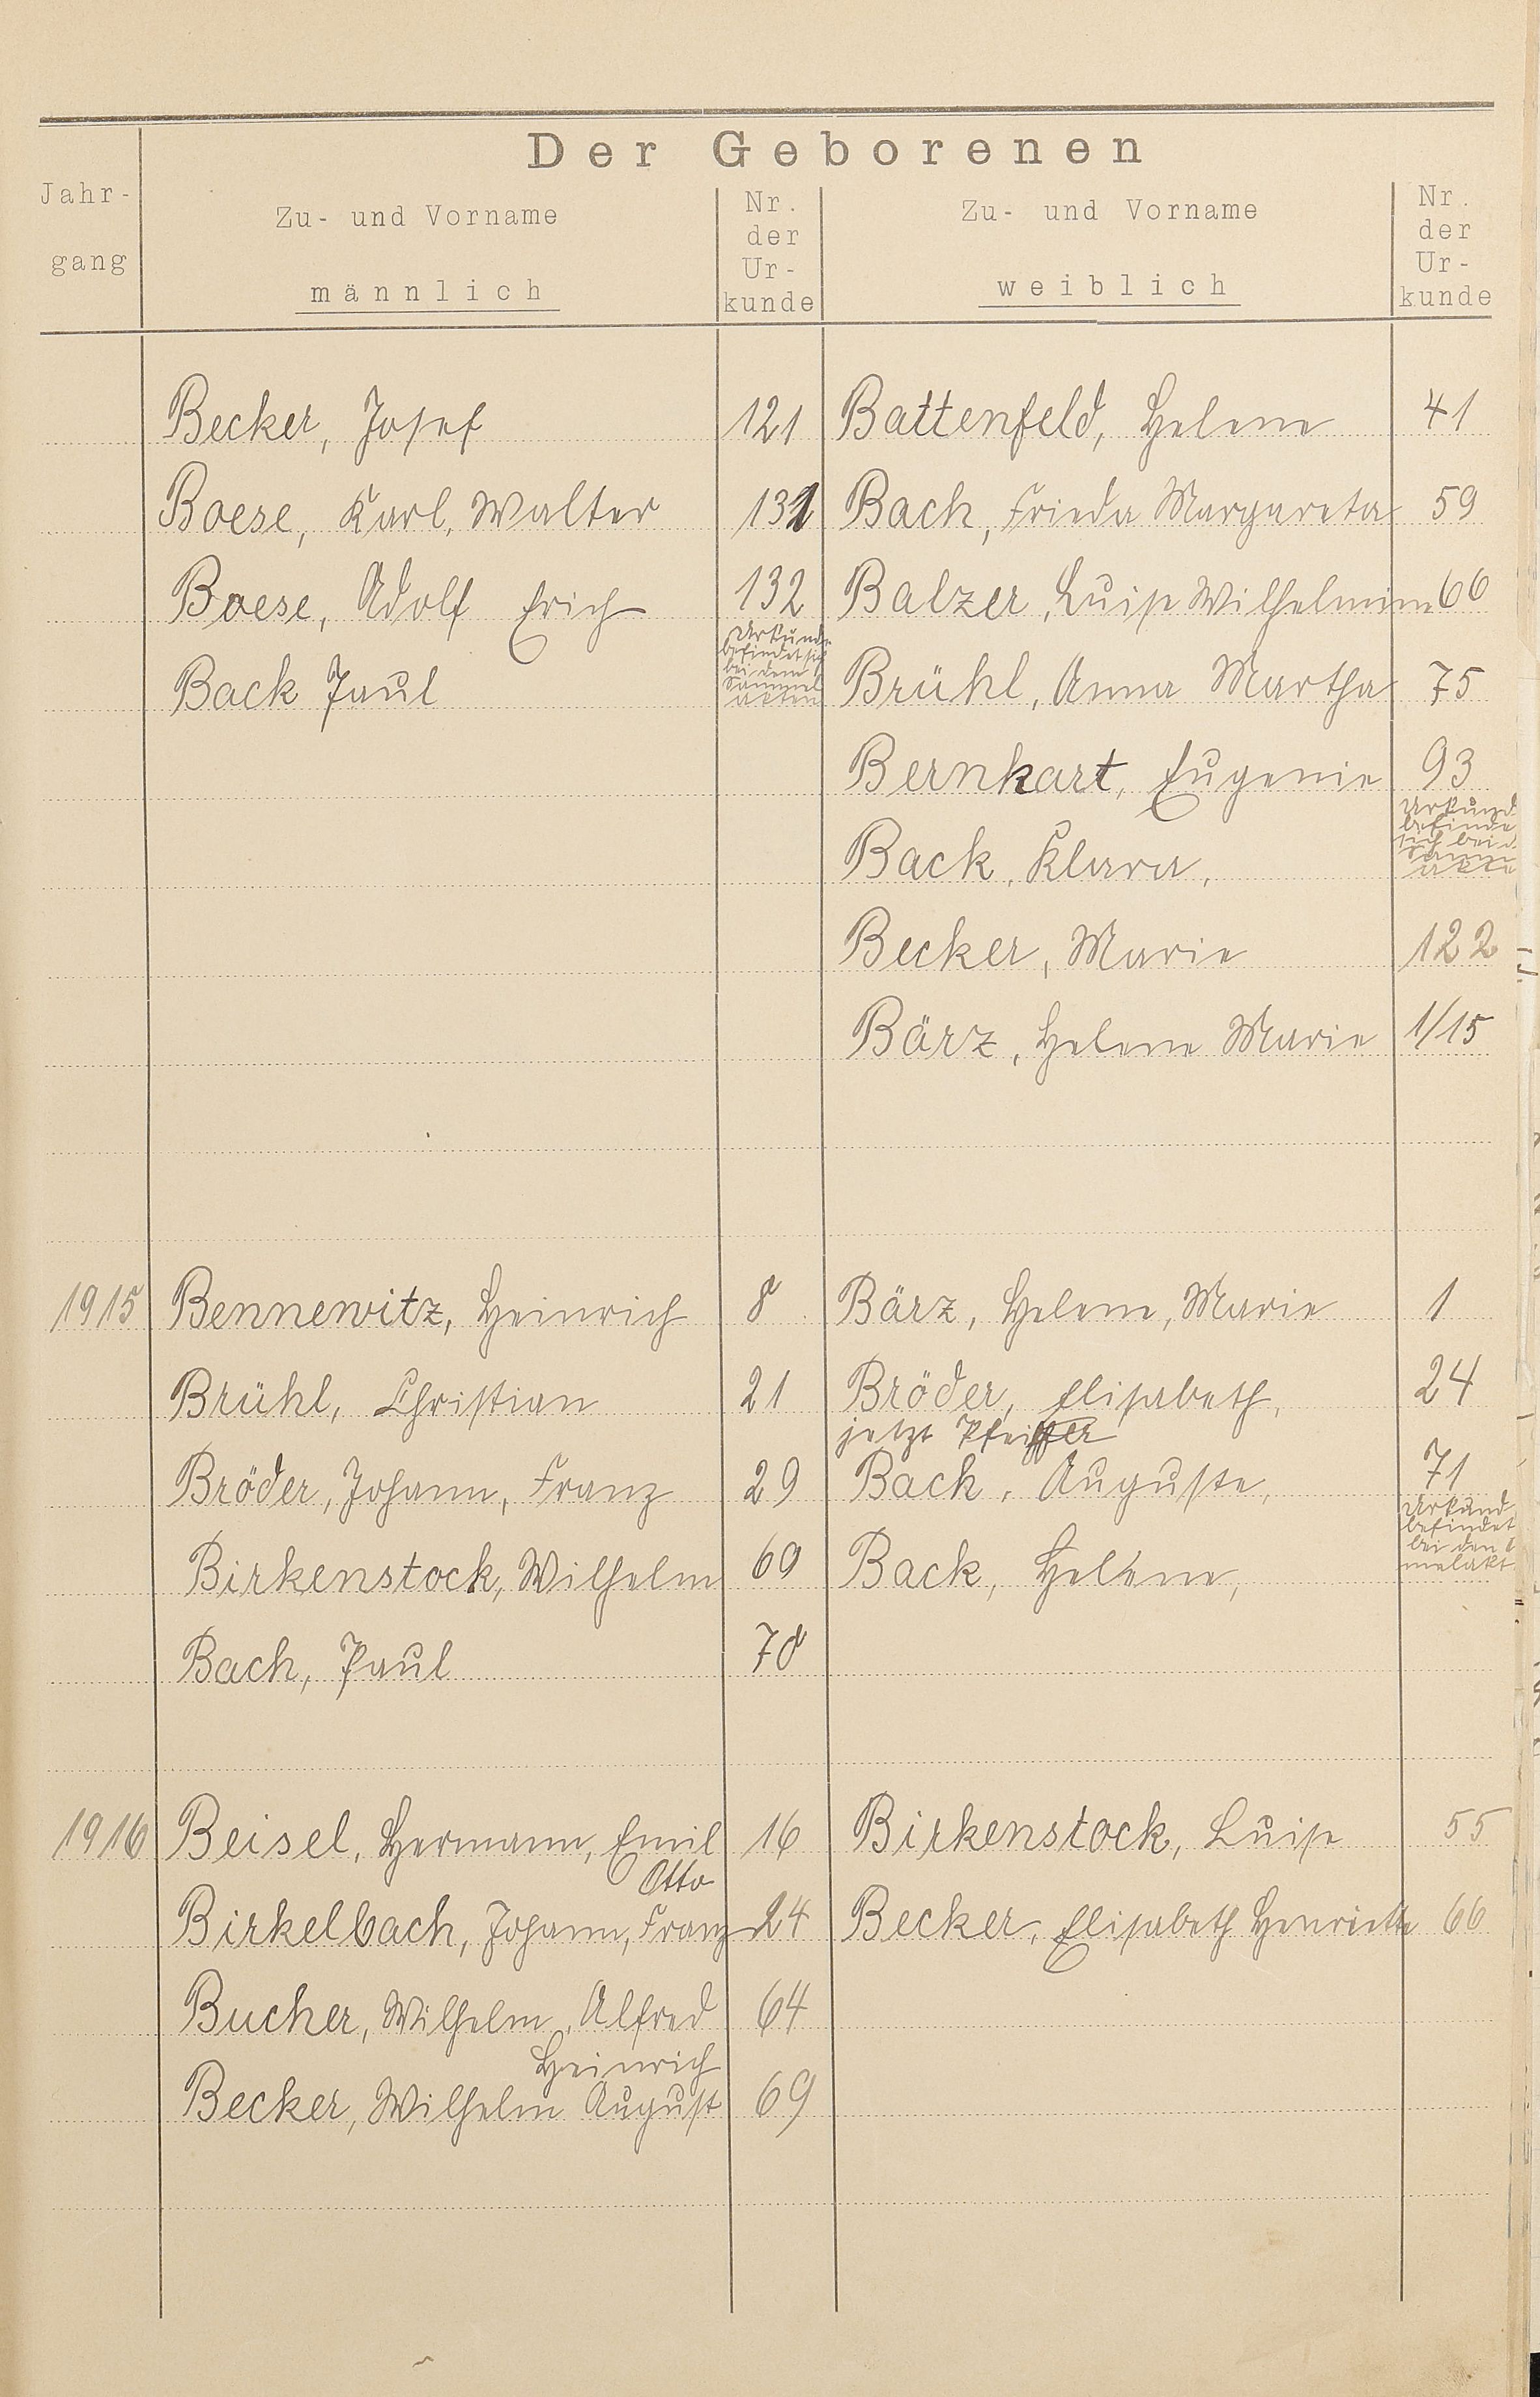 Der Geborenen
Jahr-
gang
Zu- und Vorname
männlich
Nr.
der
Ur-
kunde
Zu- und Vorname
weiblich
Nr.
der
Ur-
kunde
Becker, Josef 121 Battenfeld, Helene 41
Boese, Karl, Walter 131 Bach, Frieda Margareta 59
Boese, Adolf Erich 132 Balzer, Luise Wilhelmine 66
Back Paul Brühl, Anna Martha 75
Urkunde
befindet sich
bei dem
Sammel
akten
Bernkart, Eugenie 93
Back, Klara,
Urkund
befinde
sich bei d.
Samm
akte
Becker, Marie 122
Bärz, Helene Marie 1/15
1915 Bennewitz, Heinrich 8 Bärz, Helene, Marie 1
Brühl, Christian 21 Bröder, Elisabeth, 24
jetzt Pfeiffer
Bröder, Johann, Franz 29 Bach, Auguste, 71
Birkenstock, Wilhelm 69 Back, Helene,
Urkund
befindet
bei den
melakt
Bach, Paul 78
1916 Beisel, Hermann, Emil 16 Birkenstock, Luise 55
Otto
Birkelbach, Johann, Franz 24 Becker, Elisabeth Henriette 66
Bucher, Wilhelm, Alfred 64
Heinrich
Becker, Wilhelm August 69